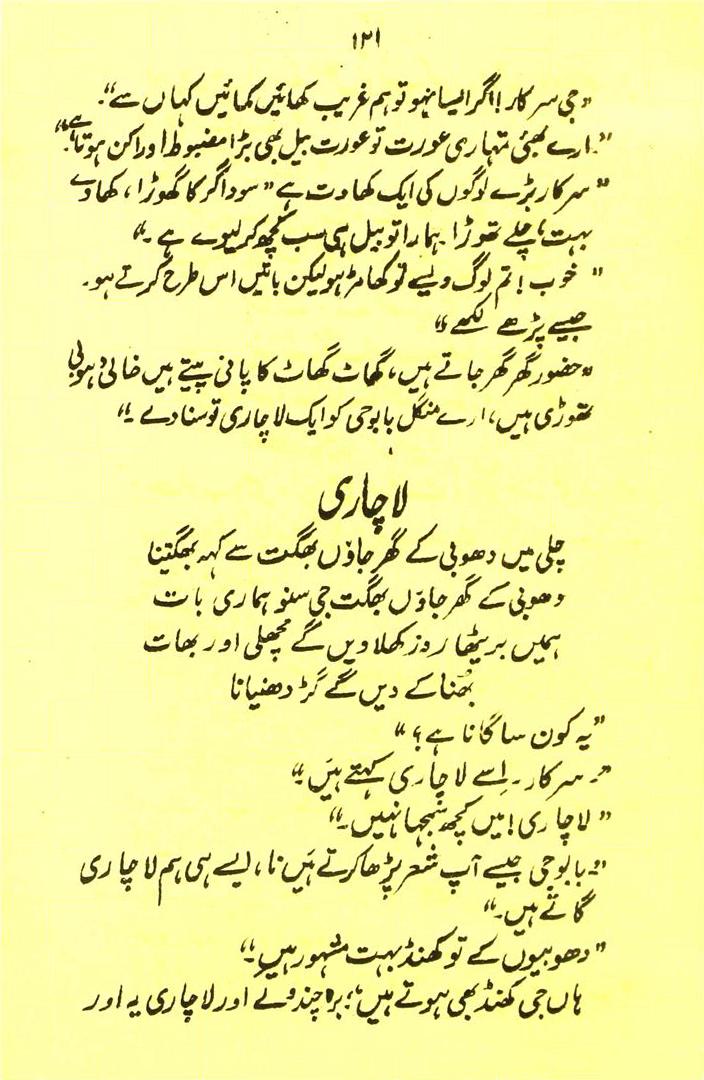 ۱۲۱
”جی سرکار! اگر ایسا نہو تو ہم غریب کھائیں کمائیں کہاں سے“۔
”ارے بھئی تمہاری عورت تو عورت بیل بھی بڑا مضبوط اور اکن ہوتا ہے“
”سرکار بڑے لوگوں کی ایک کھاوت ہے ”سوداگر کا گھوڑا، کھاوے
بہت، چلے تھوڑا ہمارا تو بیل ہی سب کچھ کر لیوے ہے۔“
”خوب! تم لوگ ویسے تو کھامڑ ہو لیکن باتیں اس طرح کرتے ہو۔
جیسے پڑھے لکھے“
”حضور گھر گھر جاتے ہیں، گھاٹ گھاٹ کا پانی پیتے ہیں خالی دھوبی
تھوڑی ہیں، ارے منگل بابو جی کو ایک لاچاری تو سنا دے۔“
لاچاری
چلی میں دھوبی کے گھر جاؤں بھگت سے کہہ بھگتینا
دھوبی کے گھر جاؤں بھگت جی سنو ہماری بات
ہمیں بریٹھا روز کھلاویں گے مچھلی اور بھات
بھنا کے دیں گے گڑ دھنیانا
”یہ کون سا گانا ہے؟“
”سرکار۔ اِسے لاچاری کہتے ہیں۔“
”لاچاری! میں کچھ سمجھا نہیں۔“
”بابو جی جیسے آپ شعر پڑھا کرتے ہیں نا، ایسے ہی ہم لاچاری
گاتے ہیں۔“
”دھوبیوں کے تو کھنڈ بہت مشہور ہیں۔“
ہاں جی کھنڈ بھی ہوتے ہیں؛ برہ چندولے اور لاچاری یہ اور